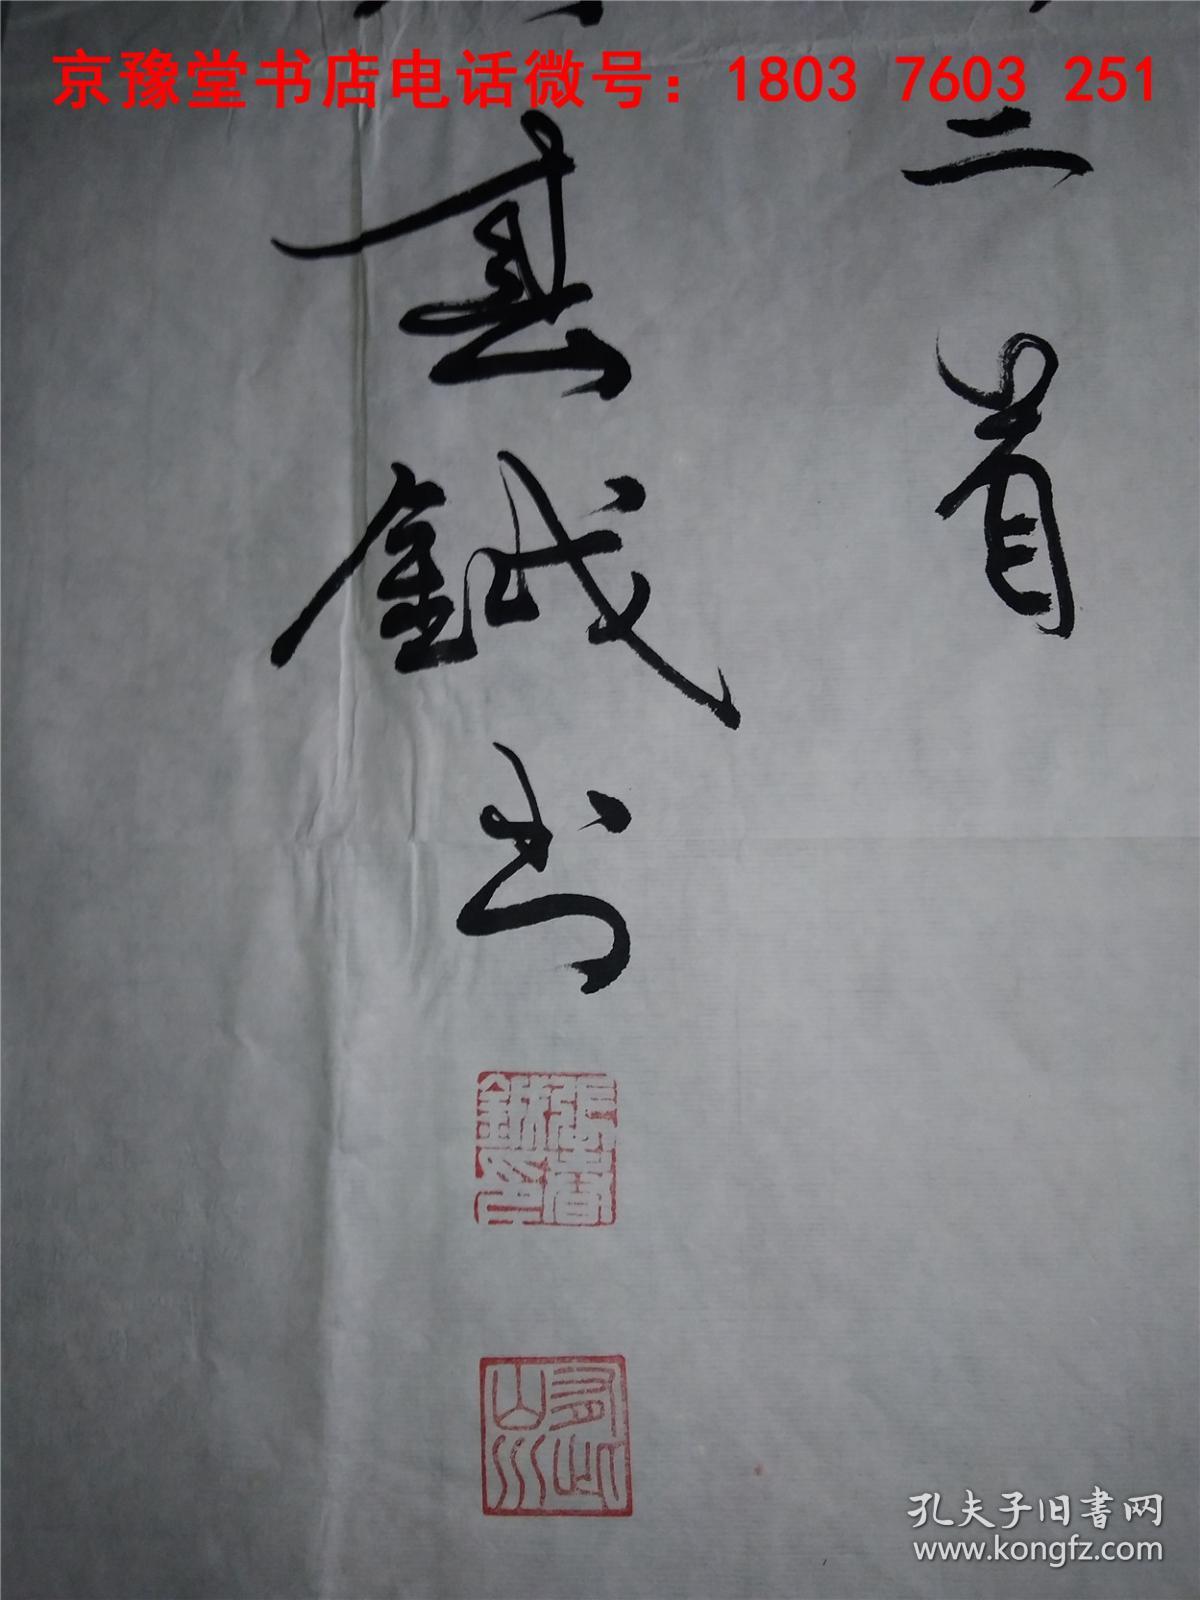 京豫堂书店电话微号：1803 7603 251
二首
春鉞书
張春鉞印
孔夫子旧书网
www.kongfz.com